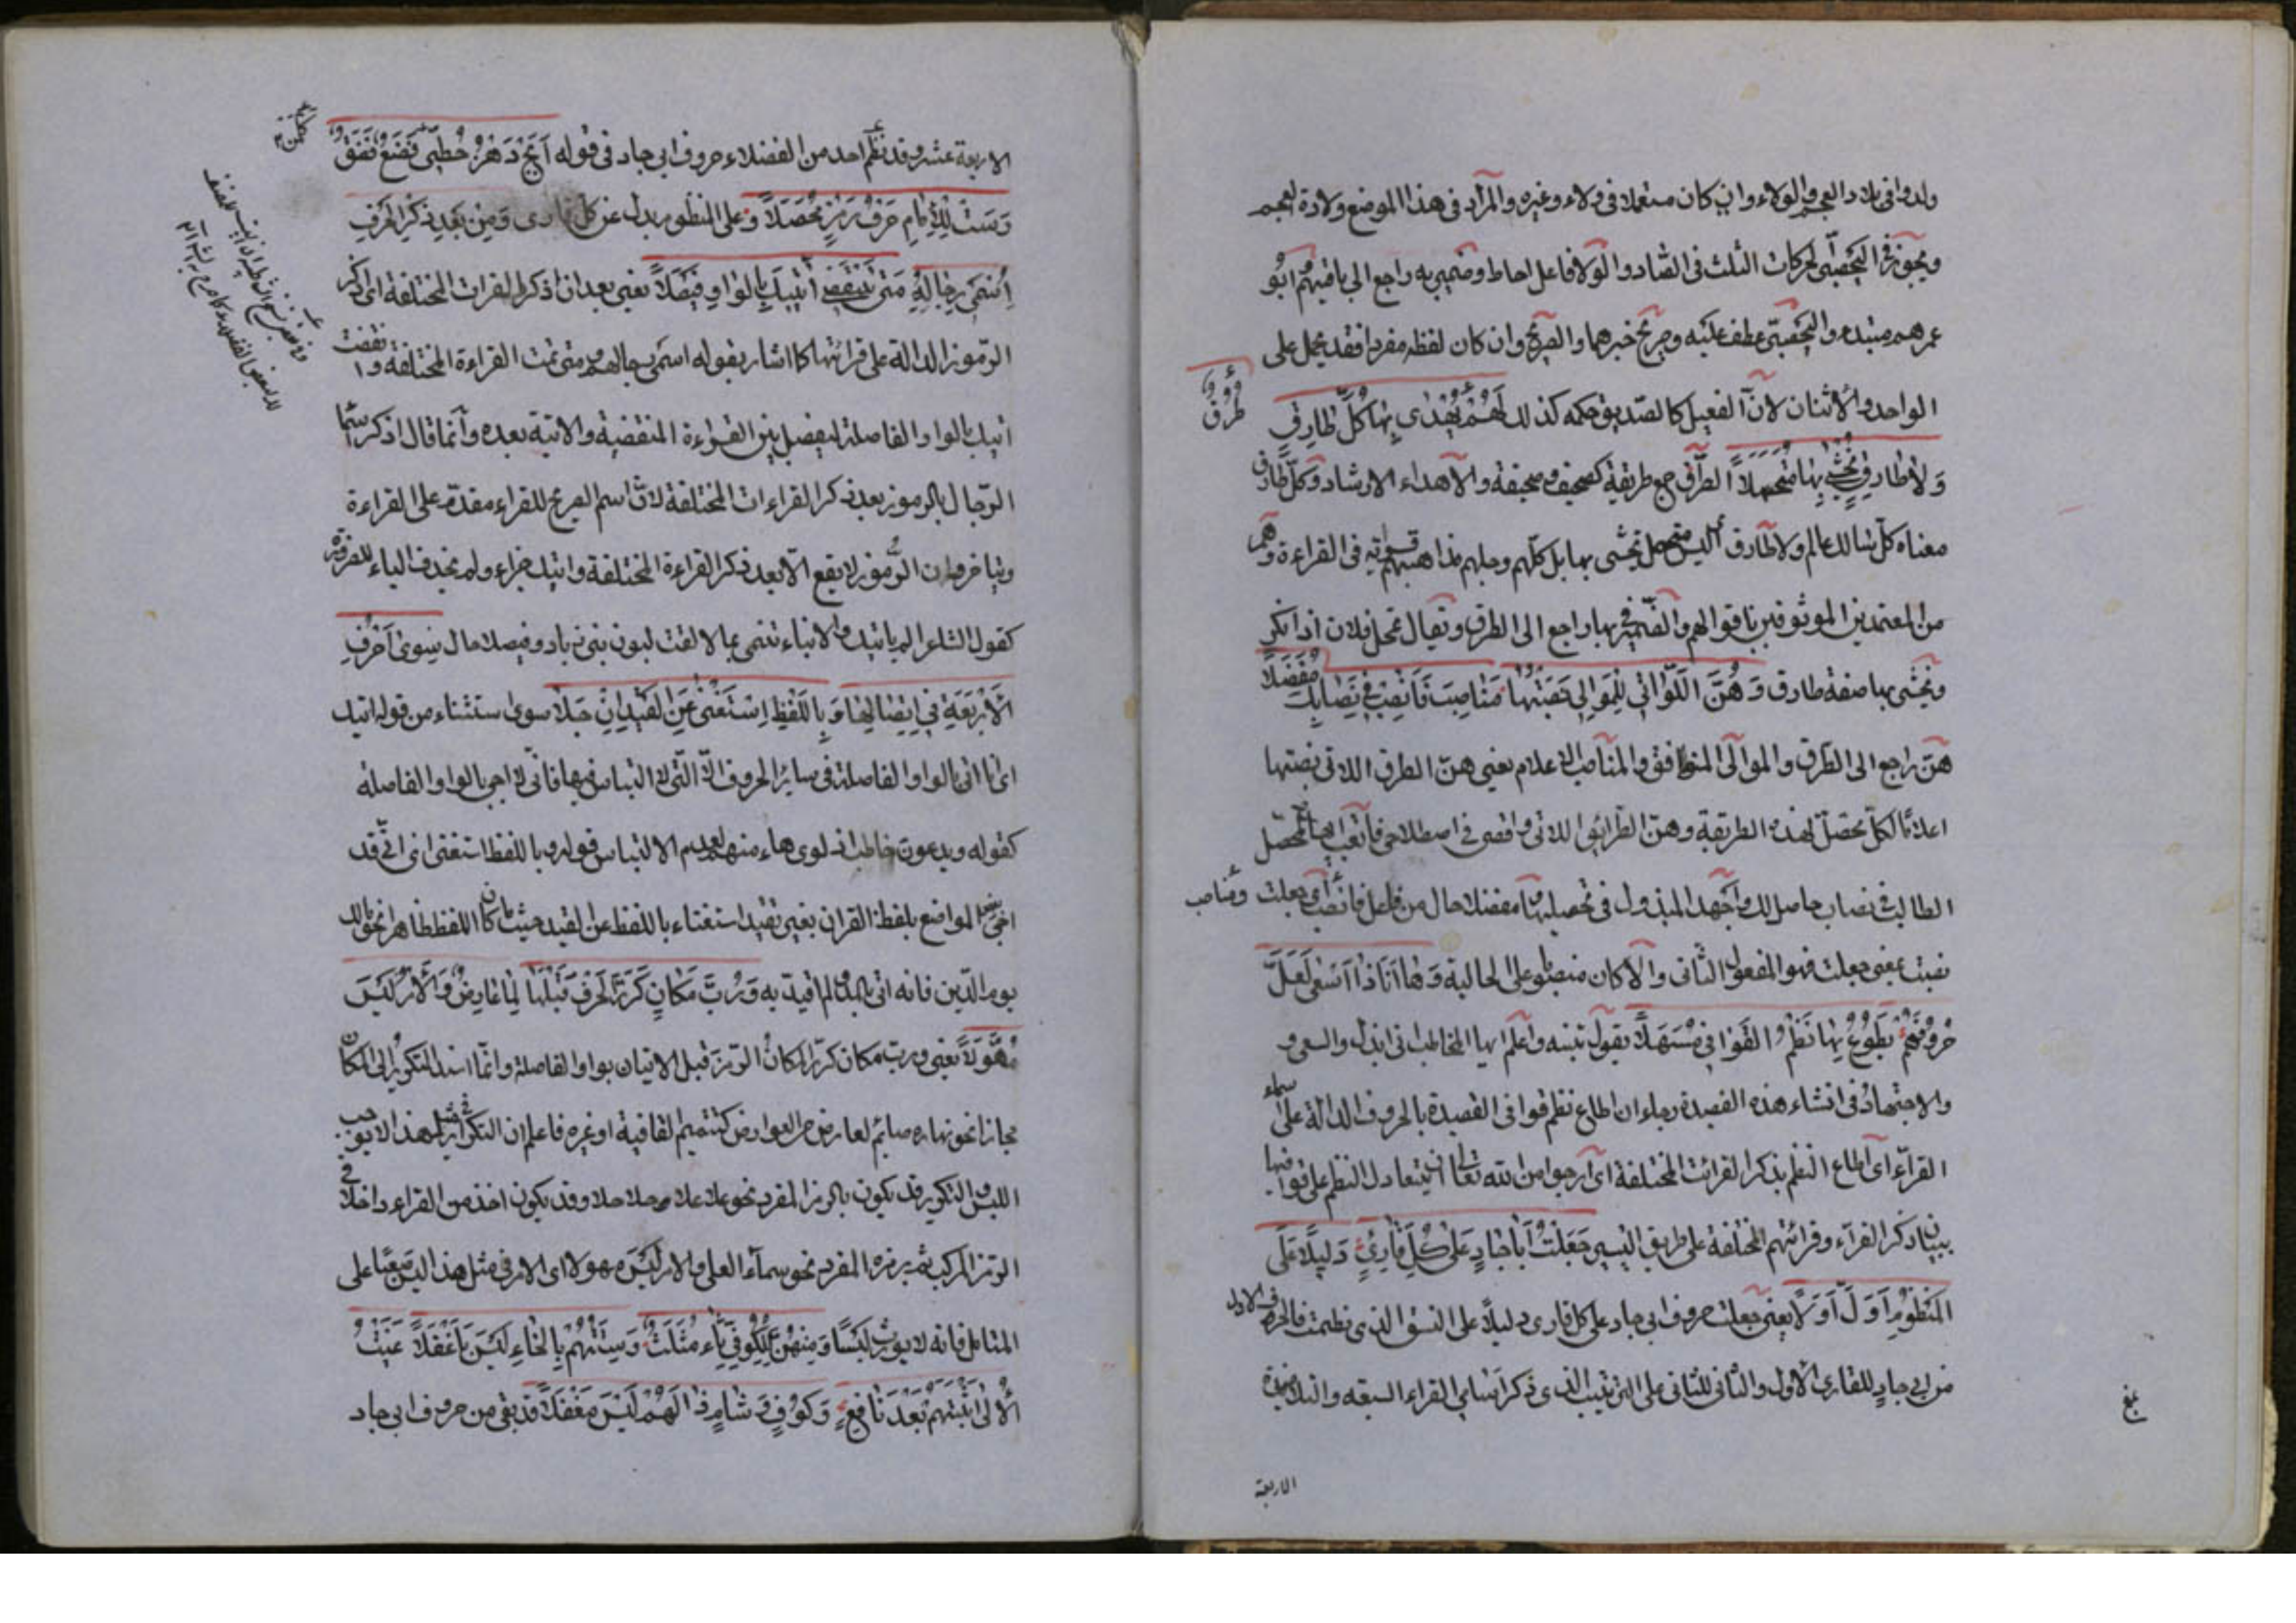 ولدوا فى بلاد العجم والولاء وان كان مستعملا فى ولاء وغيره والمراد فى هذا الموضع ولادة العجم
ويجوز فى اليحصبى الحركات الثلث فى الصاد والولا فاعل احاط وضمير به راجع الى باقيهم ابو
عمرهم مبتدء واليحصبى عطف عليه وصريح خبرهما والصريح وان كان لفظه مفردا فقد يحمل على
الواحد والاثنان لان الفعيل كالصديق حكمه كذلك لَهُمْ طُرُقٌ يُهْدٰى بِهَا كُلُّ طَارِقٍ
وَلاَ طَارِقٌ يُخْشٰى بِهَا مُتَمَحِّلاً الطرق جمع طريقة كصحف وصحيفة والاهداء الارشاد وكل طارق
معناه كل سالك عالم ولا طارق اى ليس متمحل يخشى بها بل كلهم وجلهم مذاهبهم قوية فى القراءة وهم
من المعتمدين الموثوقين باقوالهم والضمير فى بها راجع الى الطرق ويقال تمحل فلان اذا نكر
ويخشى بها صفة طارق وَهُنَّ اللَّوَاتِى لِلْمَوَالِى نَصَبْتُهَا مَنَاصِبَ فَانْصِبْ فِى نِصَابِكَ مُفْضِلاً
هن راجع الى الطرق والموالى المنوافق والمناصب الاعلام يعنى هن الطرق اللاتى نصبتها
اعلاما لكل محصل لهذه الطريقة وهن الطرايق اللاتى وافقنى فى اصطلاحى فاتعب ايها المحصل
الطالب فى نصاب حاصل لك واجهد المبذول فى تحصيلها مفضلا حال من فاعل فانصب اى جعلت ومناصب
نصبت بمعنى جعلت فهو المفعول الثانى والا كان منصوبا على الحالية وَهَا اَنَا ذَا اَسْعٰى لَعَلَّ
حُرُوفَهُمْ يَطُوعُ بِهَا نَظْمُ الْقَوَافِى مُسَهِّلاً يقول تنبه واعلم ايها المخاطب انى ابذل والسعى
والاجتهاد فى انشاء هذه القصيدة رجاء ان اطلع نظم قوافى القصيدة بالحروف الدالة على اسماء
القراء اى اطاع النظم بذكر القرائت المختلفة اى ارجوا من الله تعالى ان يتعادل النظم على قوافيها
ببيان ذكر القراء وقرائتهم المختلفة على طريق التيسير جَعَلْتُ اَبَا جَادٍ عَلٰى كُلِّ قَارِئٍ دَلِيلاً عَلَى
الْمَنْظُومِ اَوَّلَ اَوَّلاَ يعنى جعلت حروف ابى جاد على كل قارى دليلا على النسق الذى نظمت فالحرف الاول
من ابى جاد للقارى الاول والثانى للثانى على الترتيب الذى ذكر اسامى القراء السبعه والتلامذة
الاربعة
الاربعة عشر وقد نظم احد من الفضلاء حروف ابى جاد فى قوله اَبَجْ دَهَزْ حُطِّى كَلَمْ نَصَعْ فَضَقْ
رَسَتْ لِلْاِمَامِ حَرْفُ رَمْزٍ تُحَصَّلاَ وعلى المنظوم بدل عن كل قارى وَمِنْ بَعْدِ ذِكْرِى الْحَرْفَ
اُسْمِى رِجَالَهُ مَتٰى تَنْقَضِى اٰتِيكَ بِالْوَاوِ فَيْصَلاَ يعنى بعد ان اذكر القرات المختلفة اى اذكر
الرموز الدالة على قرائتها كما اشار بقوله اسمى رجالهم ومتى تمت القراءة المختلفة وانقضت
اتيك بالواو الفاصلة ليفصل بين القراءة المنقضية والاتية بعده وانما قال اذكر اسما
الرجال بالرموز بعد ذكر القراءات المختلفة لان اسم الصريح للقراء مقدم على القراءة
ويتاخر وان الرموز لا يقع الا بعد ذكر القراءة المختلفة واتيك جزاء ولم يحذف الياء للضرورة
كقول الشاعر الم ياتيك والانباء تنمى بما لاقت لبون بنى زياد وفيصلا حال سِوٰى اَحْرُفٍ
لاَ رِيبَةٌ فِى اتِّصَالِهَا وَبِاللَّفْظِ اِسْتَغْنِى عَنِ الْقَيْدِ اِنْ جَلاَ سوى استثناء من قوله اتيك
اى انا اتى بالواو الفاصلة فى سائر الحروف الا التى لا التباس فيها فانى لا اجى بالواو الفاصلة
كقوله ويدعون خاطب اذ لوى هاء منهم لعدم الالتباس قوله وباللفظ استغنى انى قد
اجى بعض المواضع بلفظ القران بغير تقييد استغناء باللفظ عن القيد حيث ما كان اللفظ ظاهرا نحو مالك
يوم الدين فانه اتى بالمد لما قيد به وَرُبَّ مَكَانٍ كَرَّرَ الْحَرْفَ قَبْلَهَا لِمَا عَارِضٌ وَالْاَمْرُ لَيْسَ
مُهَوَّلاً يعنى ورب مكان كرر المكان الرمز قبل الاتيان بواو الفاصلة وانما اسند التكرير الى المكان
مجازا نحو نهاره صائم لعارض من العوارض كتتميم القافية او غيره فاعلم ان التكرار فى مثل هذا لا يوجب
اللبس والتكرير قد يكون بالرمز المفرد نحو علا علا وحلا حلا وقد يكون اخذ من القراء داخلا فى
الرمز المركب ثم برمزه المفرد نحو سما العلى والامر ليس مهولا اى الامر فى مثل هذا ليس صعبا على
المتامل فانه لا يورث لبسا وَمِنْهُنَّ لِلْكُوفِىِّ ثَاءٌ مُثَلَّثٌ وَسِتَّتُهُمْ بِالْخَاءِ لَيْسَ بِاَغْفَلاَ عَنَيْتُ
الْاُلٰى اَثْبَتُّهُمْ بَعْدَ نَافِعٍ وَكُوفٍ وَشَامٍ ذَالُهُمْ لَيْسَ مُغْفَلاَ قد بقى من حروف ابى جاد